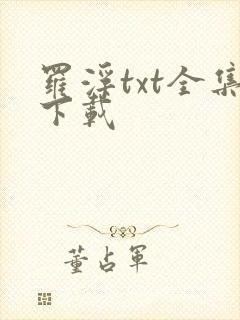 羅浮txt全集
下載
董占軍